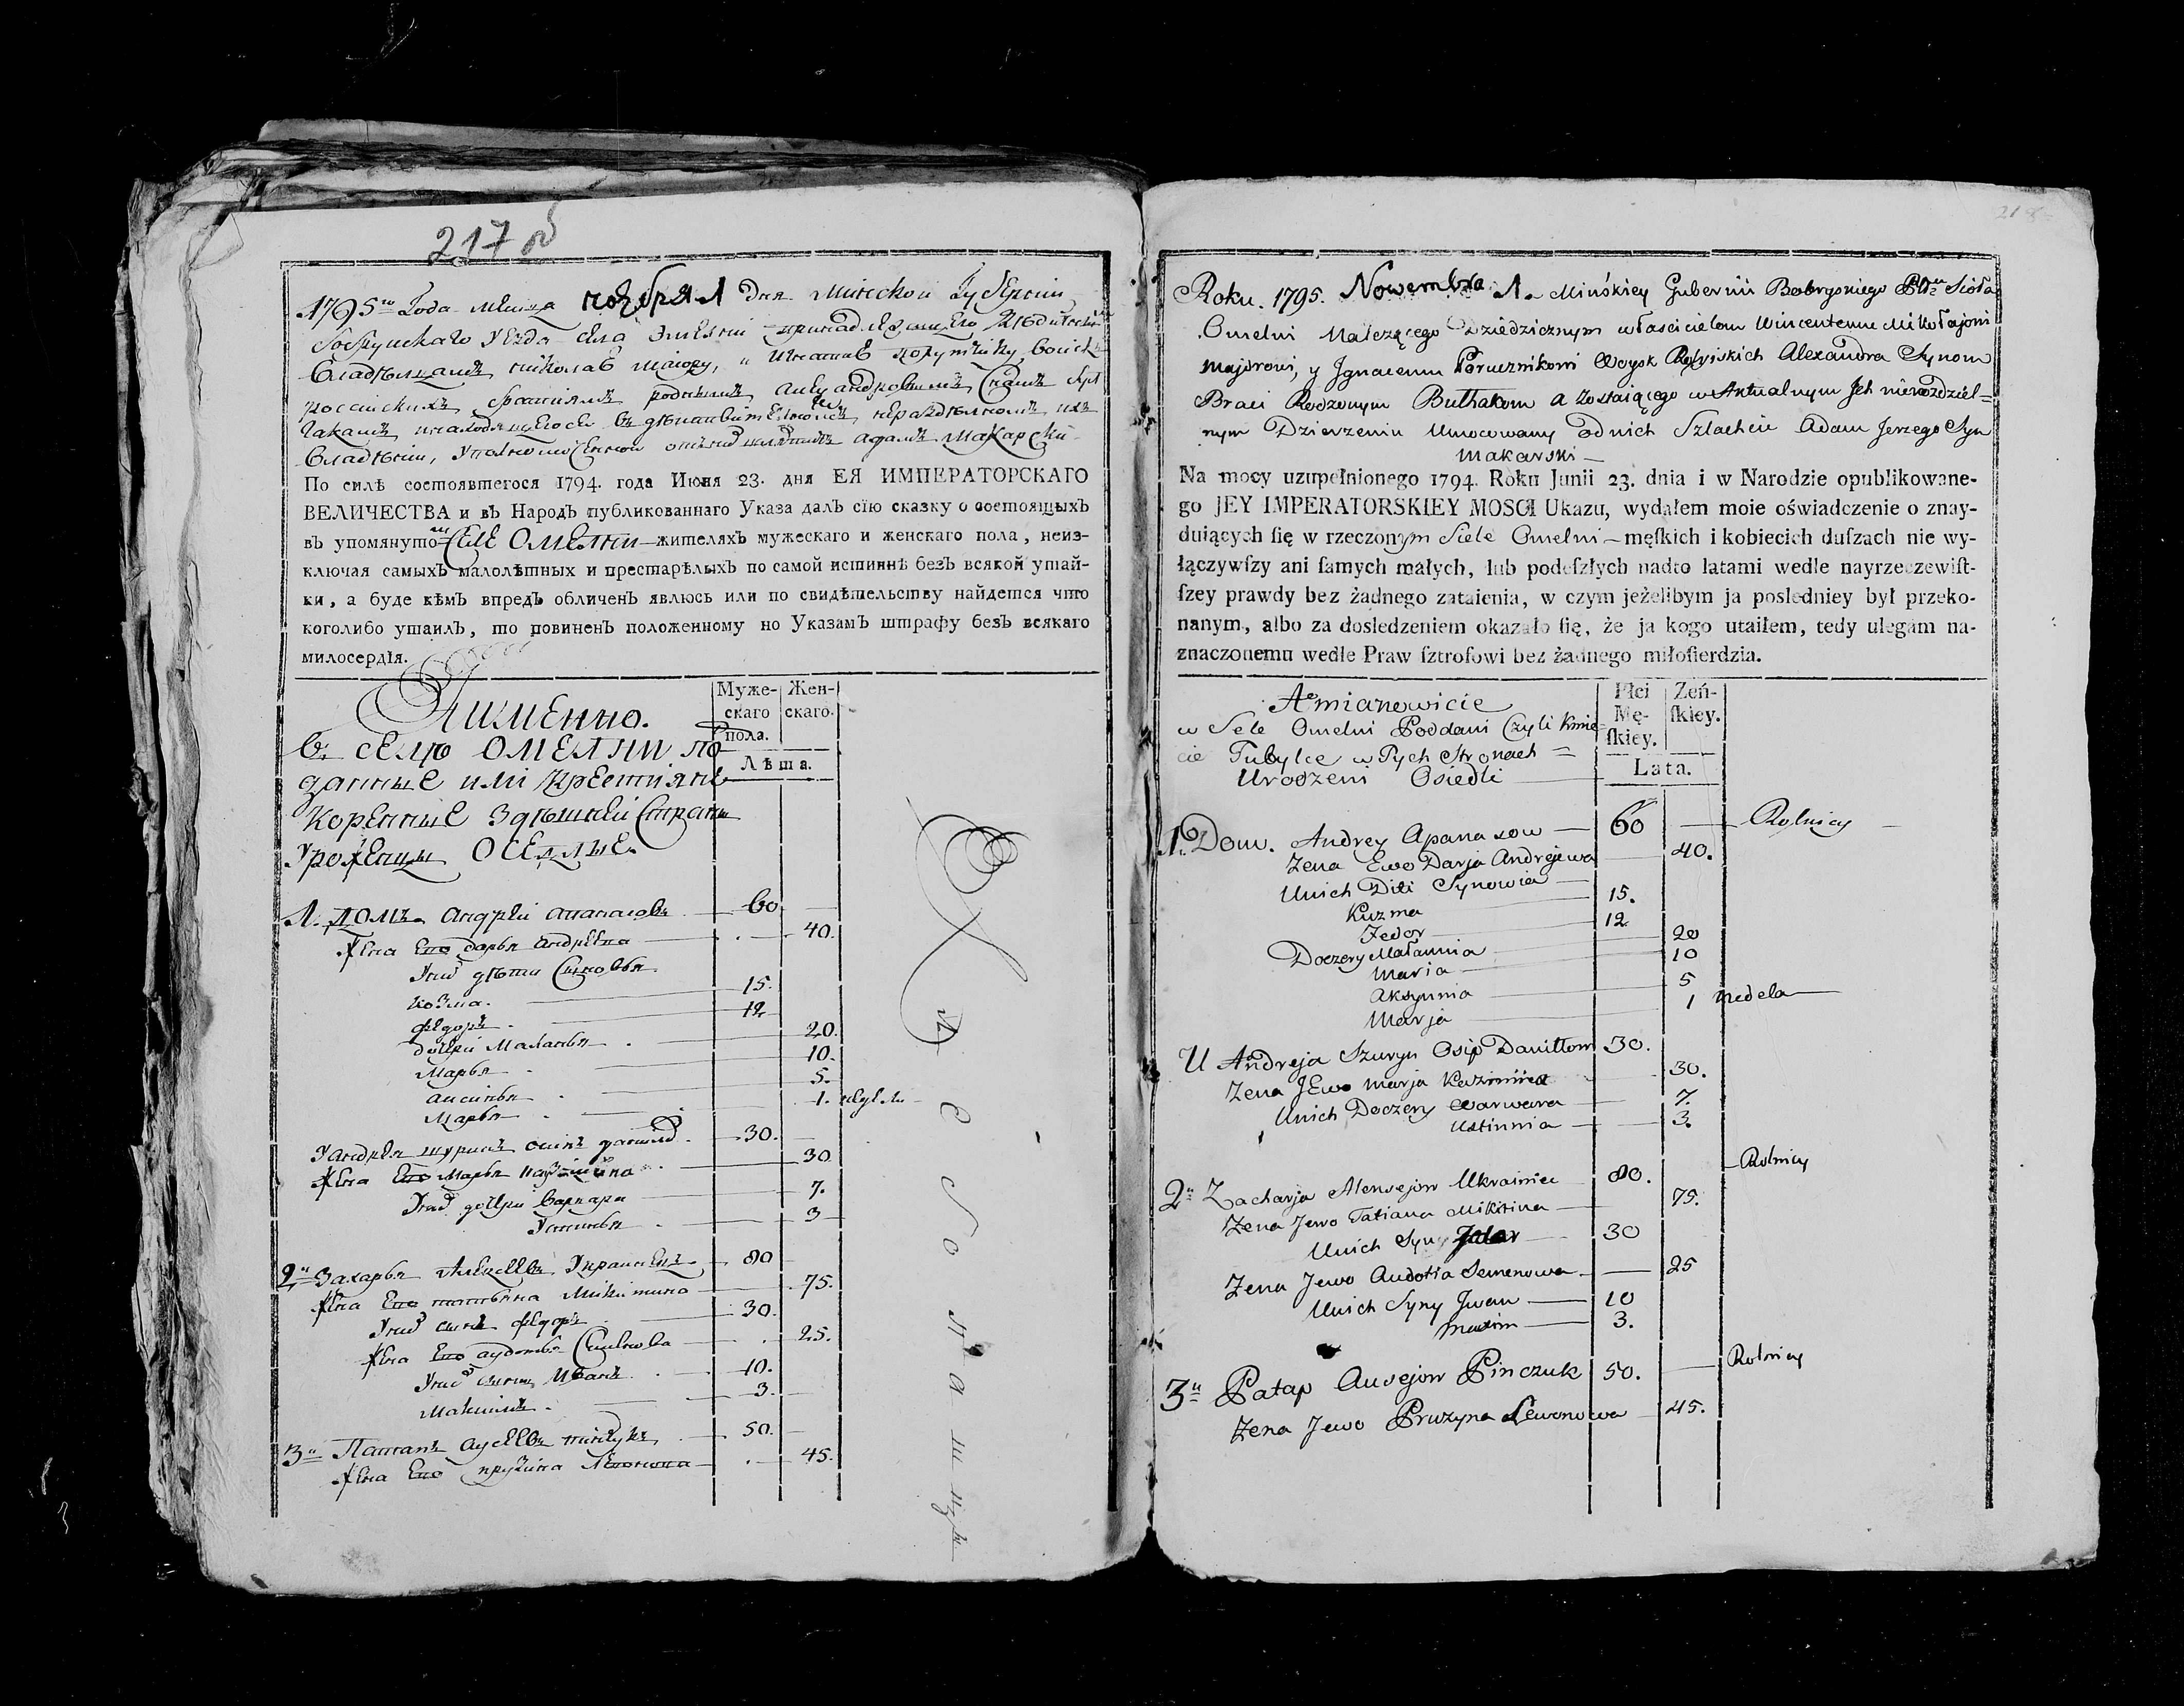 217 об
1795го Года месяца ноября 1 дня Минской Губернии
Бобруйскаго уезда села Омельни принадлежащего
владельцам Николаю маіору, и Игнатию порутчику войск
российских братиям родным Александровым
владении, уполномоченной от них шляхтич Адам Макарский
По силѣ состоявшегося 1794. года Июня 23. дня ЕЯ ИМПЕРАТОРСКАГО
ВЕЛИЧЕСТВА и въ Народъ публикованнаго Указа далъ сїю сказку о состоящыхъ
въ упомянутомъ селе Омелни жителяхъ мужескаго и женскаго пола, неиз-
ключая самыхъ малолѣтныхъ и престарѣлыхъ по самой истиннѣ безъ всякой утай-
ки, а буде кѣмъ впредъ обличенъ явлюсь или по свидѣтельству найдется что
коголибо утаилъ, то повиненъ положенному по Указамъ штрафу безъ всякаго
милосердїя.
Аименно.
в селѣ Омелни по
данные или крестияне
коренные здешней страны
уроженцы оселлые.
Муже-
скаго
Жен-
скаго.
пола.
Лѣта.
1. домъ Андрей Апанасовъ 60
жена Ево дарья Андреева 40.
у них дети сыновья
козма. 15.
Федоръ. 12
дочери Маланья 20.
Марья 10.
аксинья 5.
Марья 1. недель
у андрея шуринъ осипъ данилов. 30.
жена Ево Марья казимирова 30
у них дочери варвара 7.
Устинья 3
2й Захарья Алексеевъ Украинецъ 80
жена Ево татьяна Микитина 75.
у них сынъ Федоръ 30.
жена Ево аудотья Семенова 25.
у них сыны Иванъ 10.
Максимъ 3.
3й Патапъ аусеевъ пинчукъ 50.
жена Ево пружина Левонова 45.
218
Roku. 1795. Nowembra 1. Mińskiey Gubernii Bobryskiego Pttu Sioła
Omelni Nalezącego Dziedzicznym właścicielom Wincentemu Mikołajowi
majorowi, y Jgnacemu Porucznikowi Woysk Rossyiskich Alexandra Synom
Braci Rodzonym Bułhakom a Zostaiącego w Aktualnym Jch nierozdziel=
nym Dzierzeniu Umocowany od nich Szlachcic Adam Jerzego Syn
Makarski
Na mocy uzupełnionego 1794. Roku Junii 23. dnia i w Narodzie opublikowane-
go JEY IMPERATORSKIEY MOSCI Ukazu, wydałem moie oświadczenie o znay-
duiących ſię w rzeczonym Siele Omelni męſkich i kobiecich duſzach nie wy-
łączywſzy ani ſamych małych, lub podeſzłych nadto latami wedle nayrzeczewiſt-
ſzey prawdy bez żadnego zataienia, w czym jeżelibym ja posledniey był przeko-
nanym, albo za dosledzeniem okazało ſię, że ja kogo utaiłem, tedy ulegam na-
znaczonemu wedle Praw ſztrofowi bez żadnego miłoſierdzia.
A mianowicie
w Sele Omelni Poddani Czyli Kmie
cie Tubylce w Tych Stronach =
Urodzeni Osiedli
Płci
Mę-
ſkiey.
Zeń-
ſkiey.
Lata.
1. Dom. Andrey Apanasow 60 Rolnicy
Zena Ewo Darja Andrejewa 40.
Unich Diti Synowia
Kuzma 15.
Fedor 12
Doczery Małannia 20
Maria 10
Aksynnia 5
Marja 1 Nedela
U Andreja Szuryn Osip Daniłłow 30.
Zena JEwo Marja Kazimira 30.
Unich Doczery Warwara 7.
Ustinnia 3.
2й Zacharja Alexsejow Ukrainiec 80. Rolnicy
Zena Jewo Tatiana Mikitina 75.
Unich Syny Fedor 30
Zena Jewo Audotia Semenowa 25
Unich Syny Jwan 10
Maxim 3.
3й Patap Ausejow Pinczuk 50. Rolnicy
Zena Jewo Pruzyna Lewonowa 45.